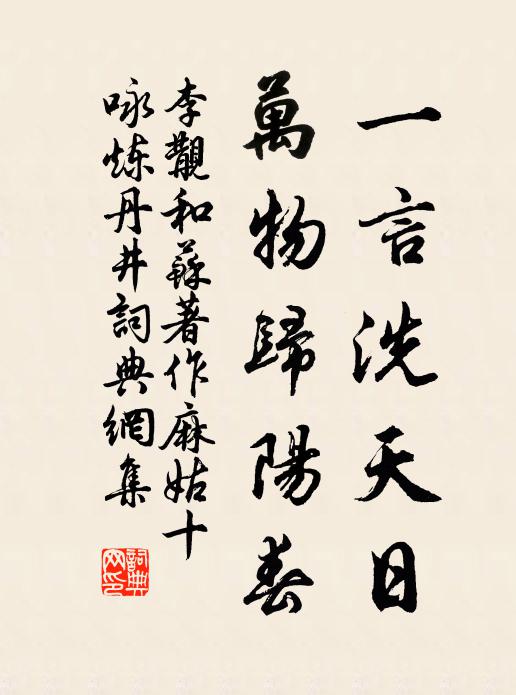 一言洗天日
萬物歸陽春
李觀和蘇著作麻姑十
咏炼丹井詞典網集
詞典网印